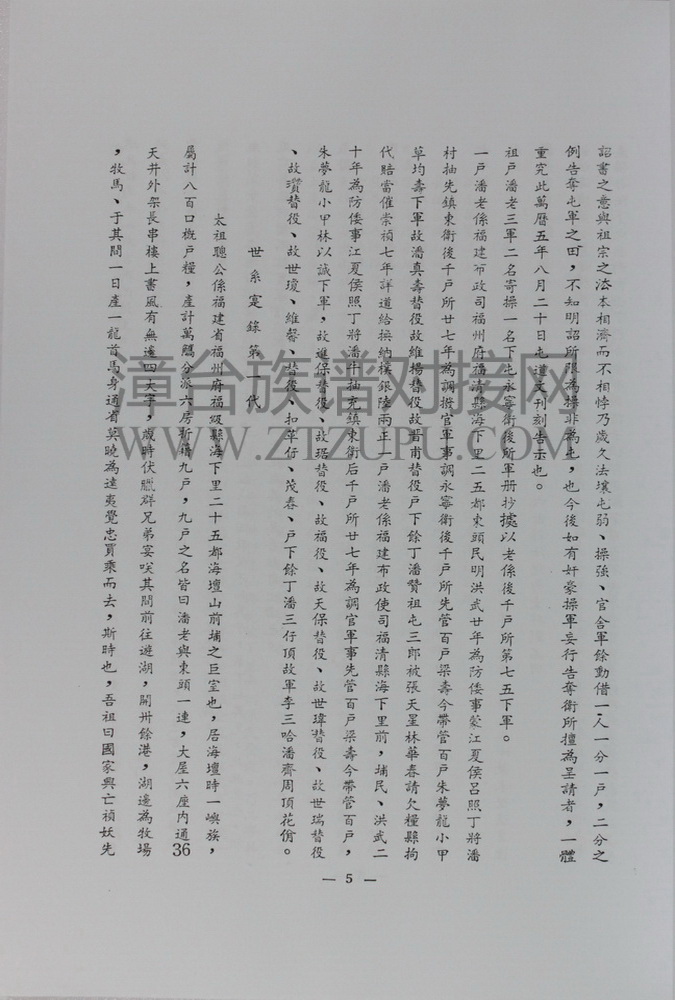 詔書之意與祖宗之法本相濟而不相悖乃歲久法壞屯弱、操強、官舍軍餘動借一人一分一戶，二分之
例告奪屯軍之田，不知明詔所限為操非為屯，也今後如有奸豪操軍妄行告奪衛所擅為呈請者，一體
重究此萬曆五年八月二十日屯道文刊刻告示也。
祖戶潘老三軍二名寄操一名下屯永寧衛後所軍册抄據以老係後千戶所第七五下軍。
一戶潘老係福建布政司福州府福清縣海下里二五都東頭民明洪武廿年為防倭事蒙江夏侯呂照丁將潘
村抽先鎮東衛後千戶所廿七年為調撥官軍事調永寧衛後千戶所先管百戶梁壽今帶管百戶朱夢龍小甲
草均壽下軍故潘真壽替役故維揚替役故晋甫替役戶下餘丁潘贊祖屯三郎被張天星林華春請欠糧縣拘
代賠當催崇禎七年詳道給換納樣銀陸兩正一戶潘老係福建布政使司福清縣海下里前，埔民、洪武二
十年為防倭事江夏侯照丁將潘十抽充鎮東衛后千戶所廿七年為調官軍事先管百戶梁壽今帶管百戶，
朱夢龍小甲林以誠下軍，故進保替役、故琚替役、故福役、故天保替役、故世瑋替役、故世瑞替役
、故瓚替役、故世瓊、維馨、替役、扣草仔、茂春、戶下餘丁潘三仔頂故軍李三哈潘齊周頂花俏。
世系寔錄第一代
太祖聰公係福建省福州府福縣海下里二十五都海壇山前埔之巨室也，居海壇時一嶼族，
屬計八百口概戶糧，產計萬觴分派六房析墻九戶，九戶之名皆曰潘老與東頭一連，大屋六座內通36
天井外架長串樓上書風有無邊四大字，歲時伏臘群兄弟宴咲其間前往避湖，開卅餘港，湖邊為牧場
，牧馬、于其間一日產一龍首馬身通省莫曉為達夷覺忠買乘而去，斯時也，吾祖曰國家興亡禎妖先
— 5 —
漳台族谱对接网
WWW.ZTZUPU.COM